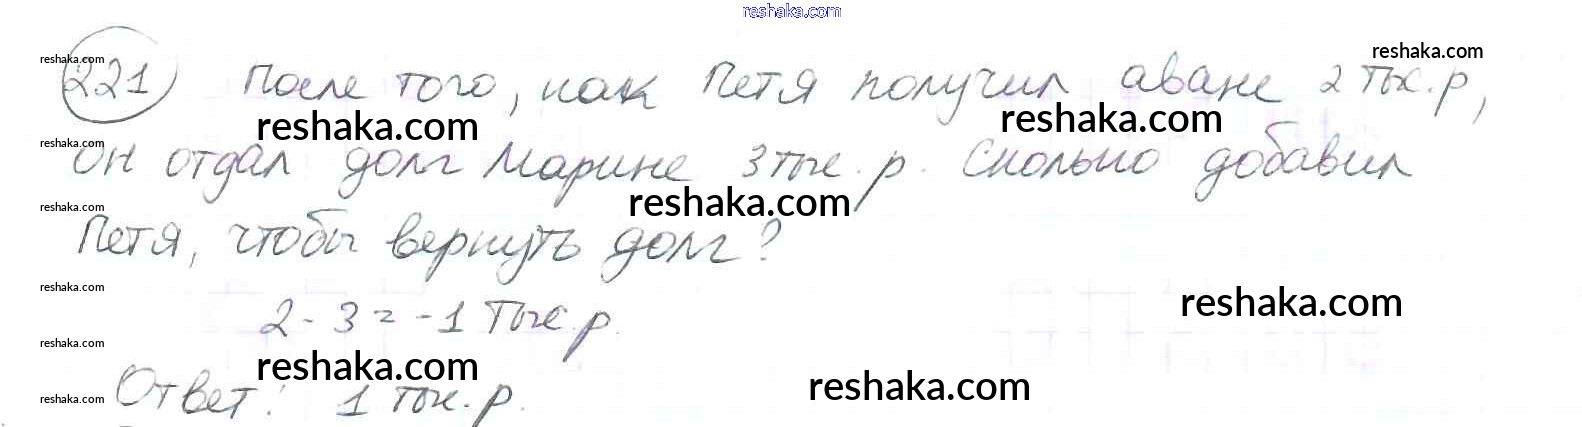 reshaka.com
221 После того, как Петя получил аванс 2 тыс. р,
он отдал долг Марине 3 тыс. р. Сколько добавил
Петя, чтобы вернуть долг?
2 - 3 = -1 тыс. р.
Ответ: 1 тыс. р.
reshaka.com
reshaka.com
reshaka.com
reshaka.com
reshaka.com
reshaka.com
reshaka.com
reshaka.com
reshaka.com
reshaka.com
reshaka.com
reshaka.com
reshaka.com